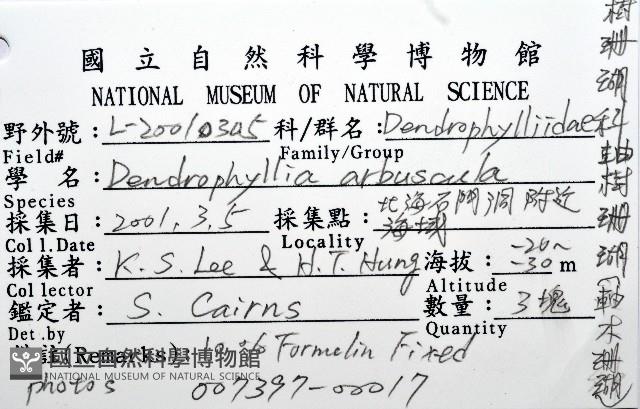 國立自然科學博物館
NATIONAL MUSEUM OF NATURAL SCIENCE
野外號：L-20010305 科/群名：Dendrophylliidae
Field# Family/Group
學 名：Dendrophyllia arbuscula
Species
採集日：2001.3.5 採集點：北海石門洞附近海域
Coll.Date Locality
採集者：K.S. Lee & H.T. Hung 海拔：-20~-30 m
Collector Altitude
鑑定者：S. Cairns 數量：3塊
Det.by Quantity
(Remarks): Formelin Fixed
國立自然科學博物館
NATIONAL MUSEUM OF NATURAL SCIENCE
photos 001397-00017
樹珊瑚科軸樹珊瑚(軸木珊瑚)